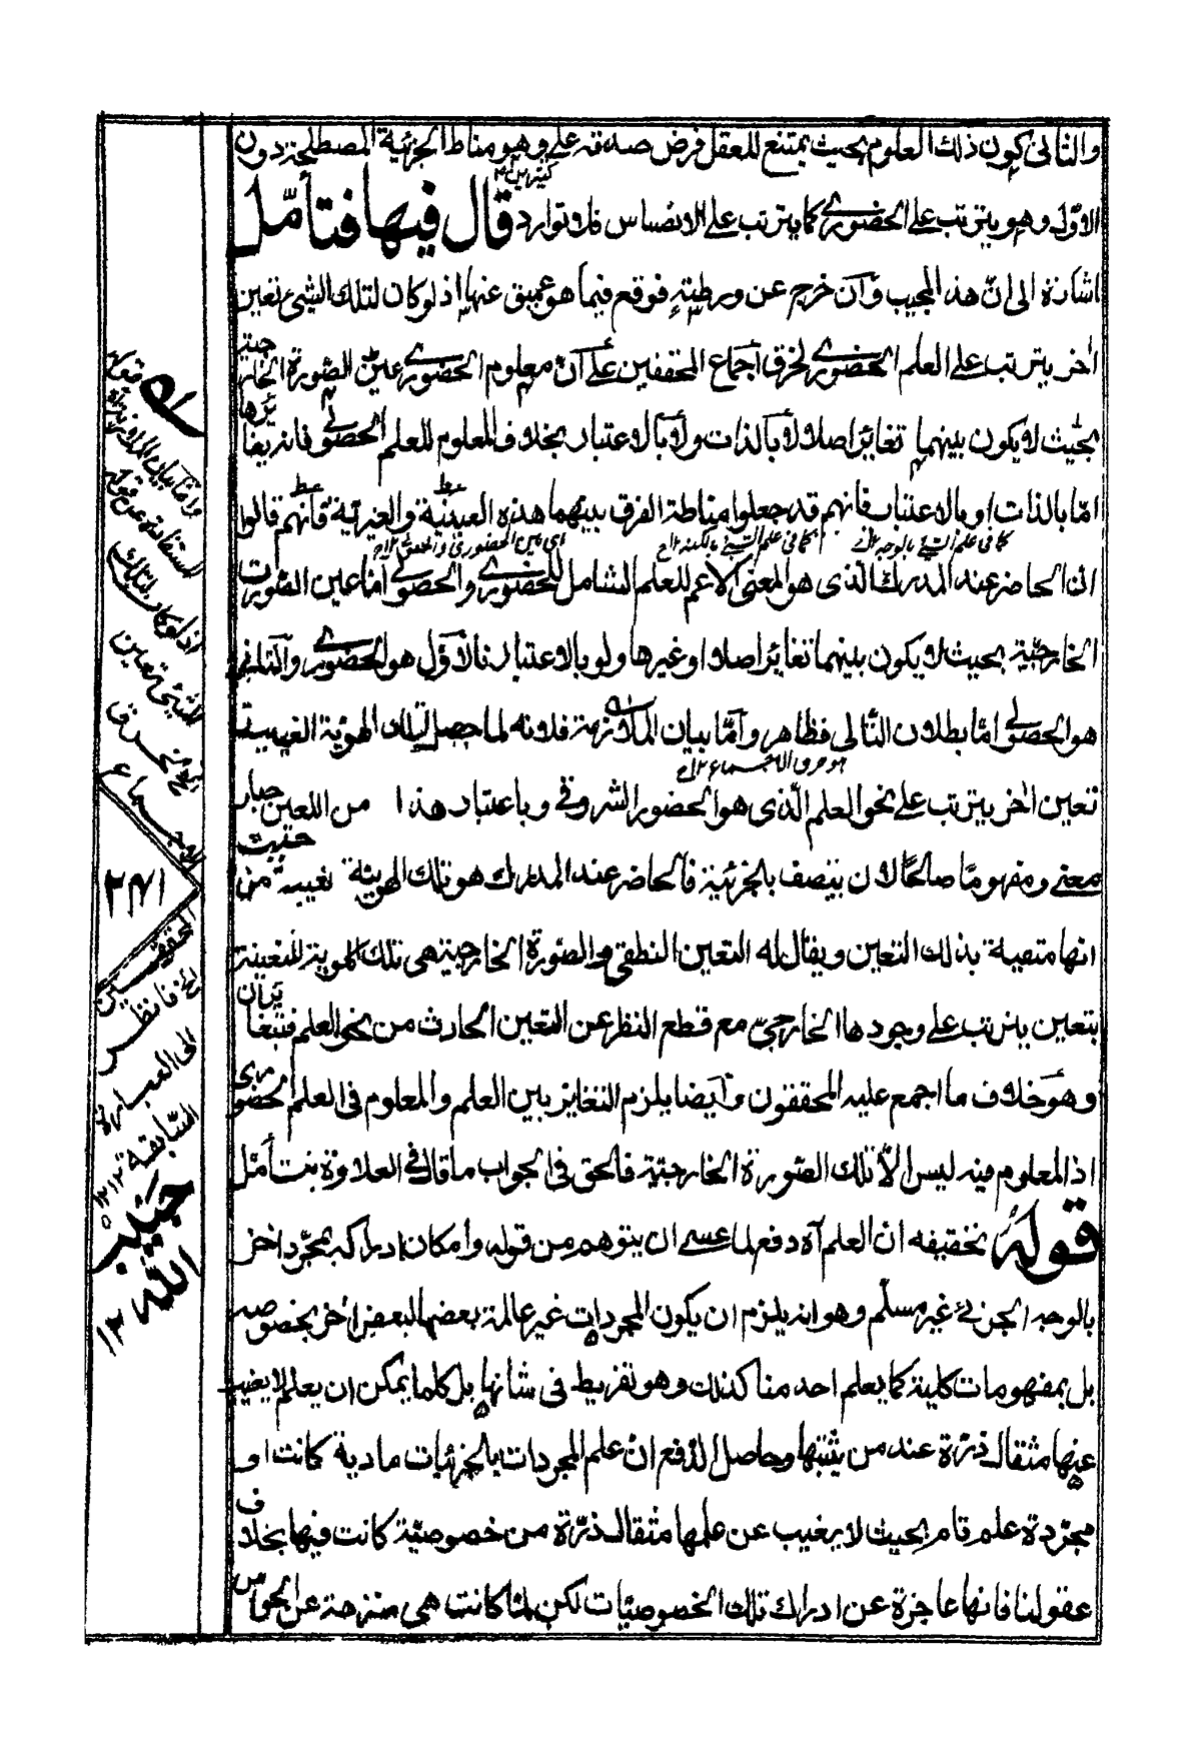 والثانى كون ذلك المعلوم بحيث يمتنع للعقل فرض صدقه على وهو مناط الجزئية المصطلحة دون
كثيرين ١٢
الاوّل وهو يترتب على الحضورى كما يترتب على الاحساس فلا توارد قال فيها فتأمّل
اشارة الى انّ هذ المجيب وآن خرج عن ورطةٍ فوقع فيما هو عميق عنها اذ لو كان لتلك الشىء تعين
أخر يترتب على العلم الحضورى لخرق اجماع المحققين على أن معلوم الحضورى عين الصّورة الخارجية
بحيث لا يكون بينهما تغائر اصلا لا بالذات ولا بالاعتبار بخلاف المعلوم للعلم الحصولى فانه يغايرها
امّا بالذات او بالاعتبار فانهم قد جعلوا مناطة الفرق بينهما هذه العينية والغيرية فانهم قالوا
كما فى علم الشىء بالوجه ١٢ كما فى علم الشىء بالكنه ١٢ اى بين الحضورى والحصولى ١٢
ان الحاضر عند المدرك الذى هو المعنى الاعم للعلم الشامل للحضورى والحصولى امّا عين الصّورة
الخارجيّة بحيث لا يكون بينهما تغائر اصلا او غيرها ولو بالاعتبار فالاوّل هو الحضورى والثانى
هو الحصولى امّا بطلان التالى فظاهر وامّا بيان الملازمة فلانه لما حصل لتلك الهويّة الغيبية
هو خرق الاجماع ١٢
تعين أخر يترتب على نحو العلم الّذى هو الحضور الشروقى وباعتبار هذا من التعين صار
معنى ومفهومًا صالحًا لان يتصف بالجزئية فالحاضر عند المدرك هو تلك الهويّة الغيبيّة من حيث
انها متعينة بذلك التعين ويقال له التعين النطقى والصّورة الخارجية هى تلك الهوية المتعينة
بتعين يترتب على وجودها الخارجىّ مع قطع النظر عن التعين الحادث من نحو العلم فيتغايران
وهو خلاف ما اجمع عليه المحققون وآيضا يلزم التغائر بين العلم والمعلوم فى العلم الحضورى
اذ المعلوم فيه ليس الّا تلك الصّورة الخارجيّة فالحق فى الجواب ما قال فى العلاوة فتأمّل
قوله تحقيقه ان العلم آه دفع لما عسى ان يتوهم من قوله وأمكان ادراكه بمجرّد اخر
بالوجه الجزئى غير مسلّم وهو انه يلزم ان يكون المجردات غير عالمة بعضها لبعض اخر بخصوصه
بل بمفهومات كلية كما يعلم احد منا كذلك وهو تفريط فى شانها بل كلما يمكن ان يعلم لا يغيب
عنها مثقال ذرّة عند من يثبتها وحاصل الدّفع انّ علم المجردات بالجزئيات مادية كانت او
مجرّدة علم تام بحيث لا يغيب عن علمها مثقال ذرّة من خصوصيّة كانت فيها بخلاف
عقولنا فانها عاجزة عن ادراك تلك الخصوصيّات لكن لمّا كانت هى منزهة عن الحواس
له قوله
وامّا بيان الملازمة
المستفادة من قوله
اذ لو كان لتلك
الشىء تعين
أخر لخرق
الاجماع
المحققين
الخ فانظر
الى العبارة
السّابقة ١٢
حبيب
اللّٰه
١٢